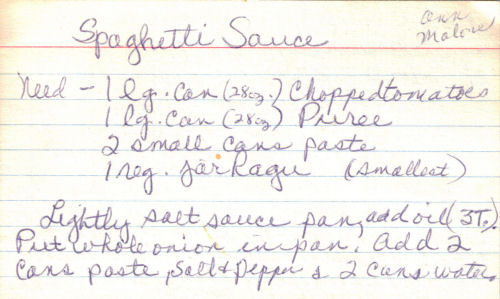 Ann
Malone
Spaghetti Sauce
Need - 1 lg. can (28oz.) Choppedtomatoes
1 lg. can (28oz) Puree
2 small cans paste
1 reg. jar Ragu (smallest)
Lightly salt sauce pan, add oil (3T.).
Put whole onion in pan. Add 2
cans paste, Salt & Pepper & 2 cans water,